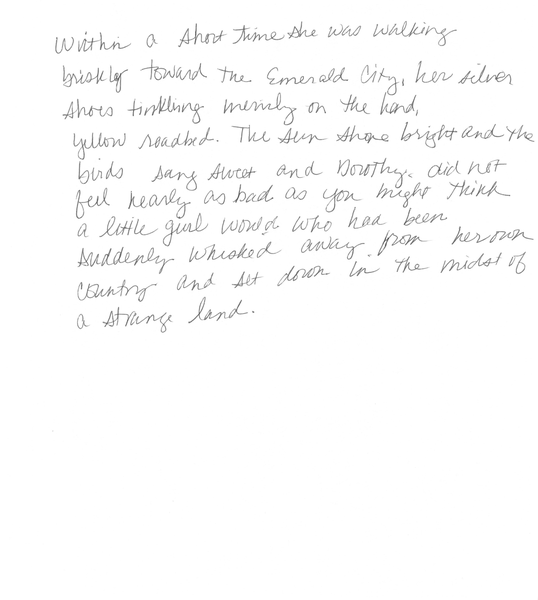 Within a short time she was walking
briskly toward the Emerald City, her silver
shoes tinkling merrily on the hard,
yellow roadbed. The sun shone bright and the
birds sang sweet and Dorothy did not
feel nearly as bad as you might think
a little girl would who had been
suddenly whisked away from her own
country and set down in the midst of
a strange land.